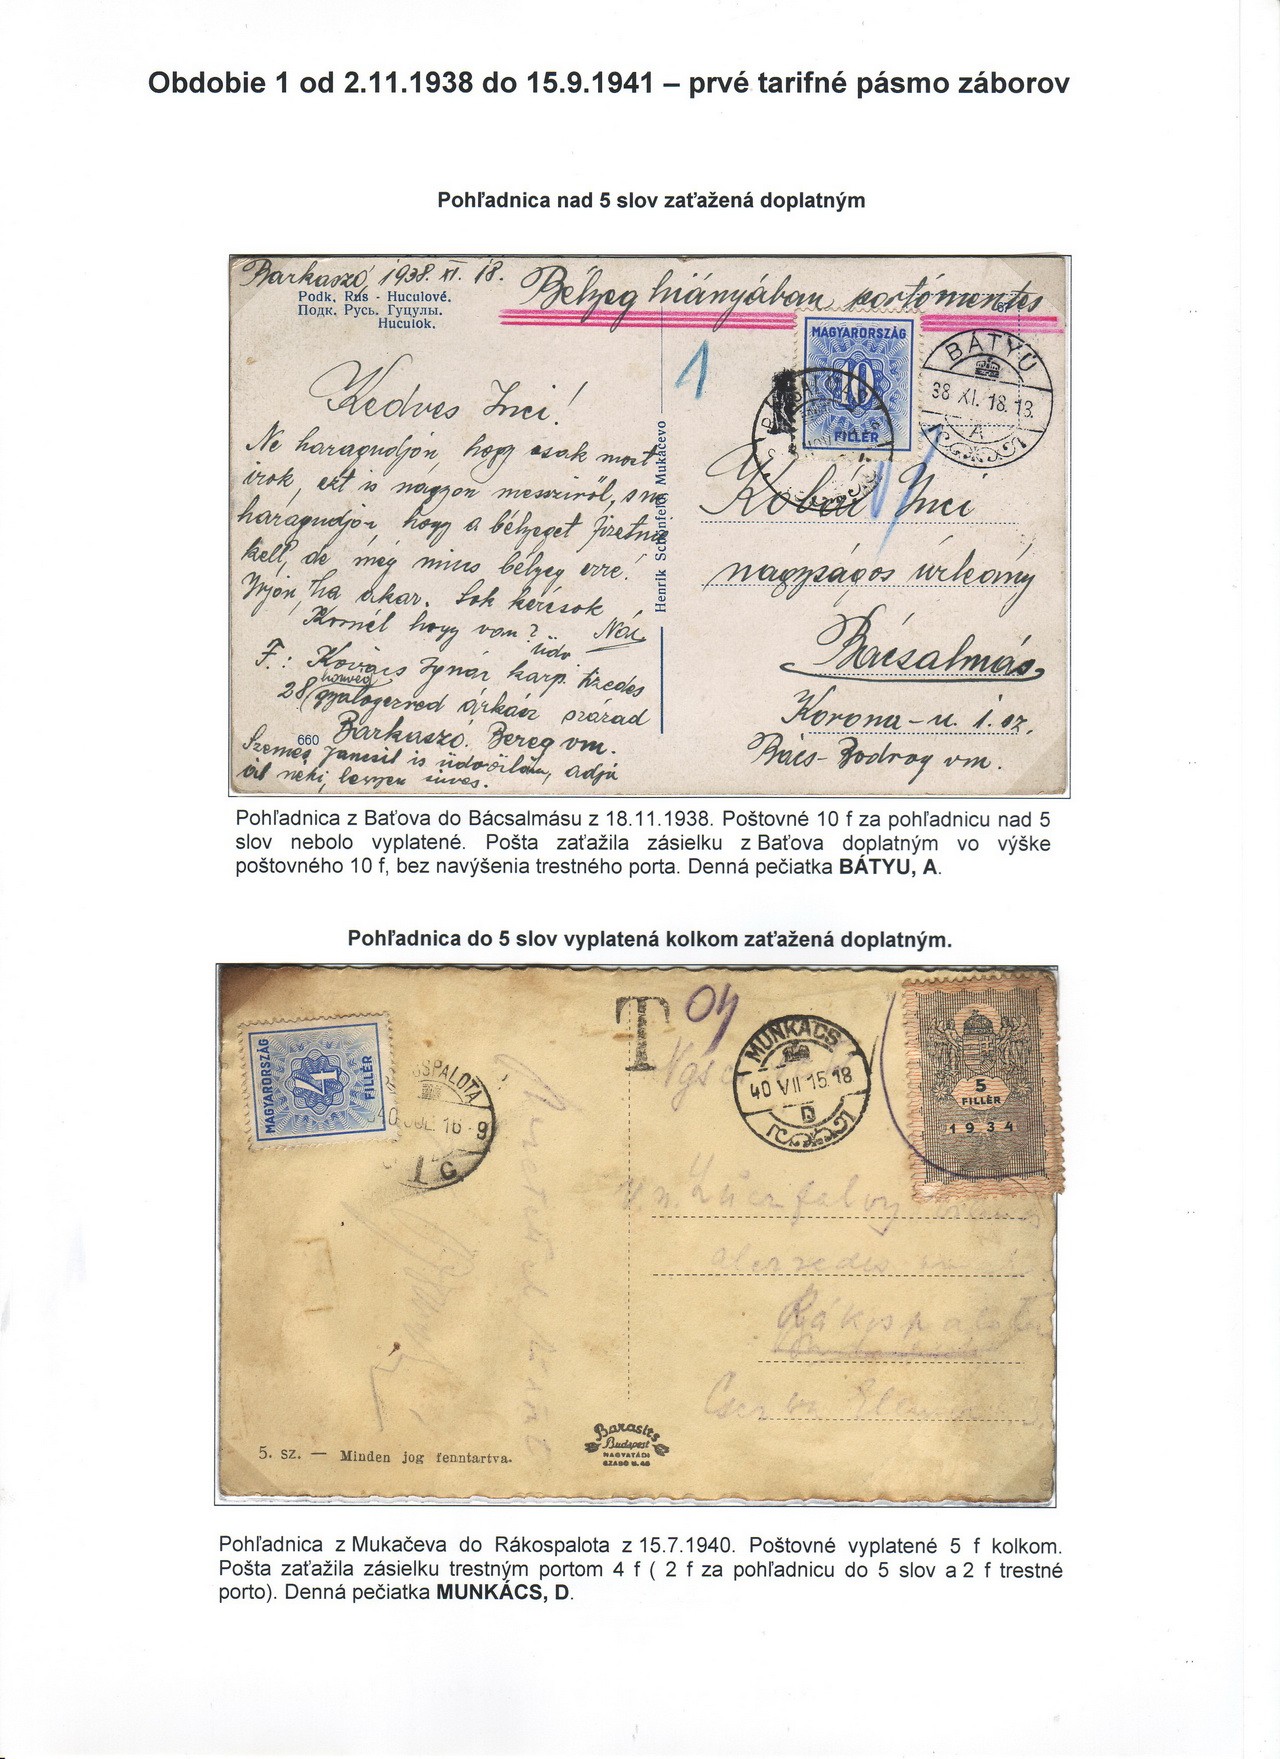 Obdobie 1 od 2.11.1938 do 15.9.1941 – prvé tarifné pásmo záborov
Pohľadnica nad 5 slov zaťažená doplatným
Barkaszó, 1938. XI. 18.
Bélyeg hiányában portómentes
Podk. Rus - Huculové.
Подк. Русь. Гуцулы.
Huculok.
1
MAGYARORSZÁG
10
FILLÉR
BÁTYÚ
38 XI. 18. 13.
A
Kedves Inci!
Ne haragudjon, hogy csak most
irok, ezt is nagyon messziről, s ne
haragudjon hogy a bélyeget fizetni
kell, de még nincs bélyeg erre.
Irjon, ha akar. Sok kézcsók
Kornél hogy van? Náci
F.: Kovács Ignác karp. tizedes
28 honvéd gyalogezred árkász század
Barkaszó. Bereg vm.
660
Szemes Jancsit is üdvözlöm, adja
át neki, legyen szíves.
Henrik Schönfeld, Mukačevo
Kobái Inci
nagyságos úrleány
Bácsalmás
Korona-u. 1. sz.
Bács-Bodrog vm.
Pohľadnica z Baťova do Bácsalmásu z 18.11.1938. Poštovné 10 f za pohľadnicu nad 5
slov nebolo vyplatené. Pošta zaťažila zásielku z Baťova doplatným vo výške
poštovného 10 f, bez navýšenia trestného porta. Denná pečiatka BÁTYU, A.
Pohľadnica do 5 slov vyplatená kolkom zaťažená doplatným.
MAGYARORSZÁG
4
FILLÉR
T
04
MUNKÁCS
40 VII 15. 18
D
5
FILLÉR
1934
Rákospalota
5. sz. — Minden jog fenntartva.
Barasits
Budapest
NAGYATÁDI
SZABÓ U. 46
Pohľadnica z Mukačeva do Rákospalota z 15.7.1940. Poštovné vyplatené 5 f kolkom.
Pošta zaťažila zásielku trestným portom 4 f ( 2 f za pohľadnicu do 5 slov a 2 f trestné
porto). Denná pečiatka MUNKÁCS, D.